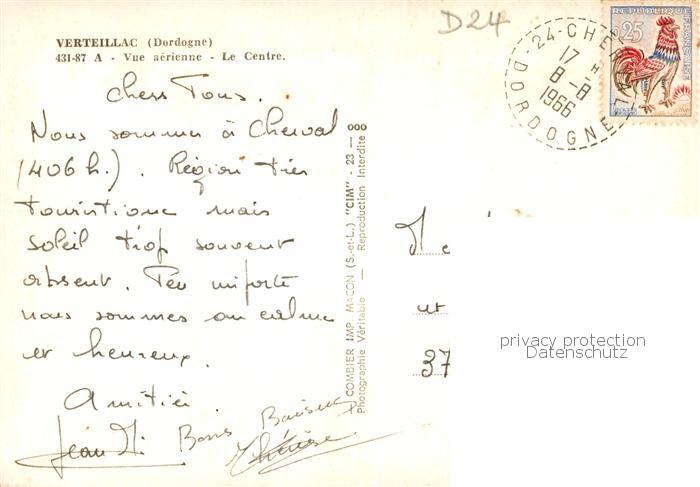 D24
VERTEILLAC (Dordogne)
431-87 A - Vue aérienne - Le Centre.
Chers Tous.
Nous sommes à Cherval
(406 h.). Région très
touristique mais
soleil trop souvent
absent. Peu importe
nous sommes au calme
et heureux.
Amitiés.
Jean Mi Bons Baisers
Thérèse
COMBIER IMP. MACON (S.-et-L.) "CIM" - 23 - 000
Photographie Véritable — Reproduction Interdite
24-CHERVAL
17 H
8-8
1966
DORDOGNE
REPUBLIQUE FRANÇAISE
0,25
37
privacy protection
Datenschutz